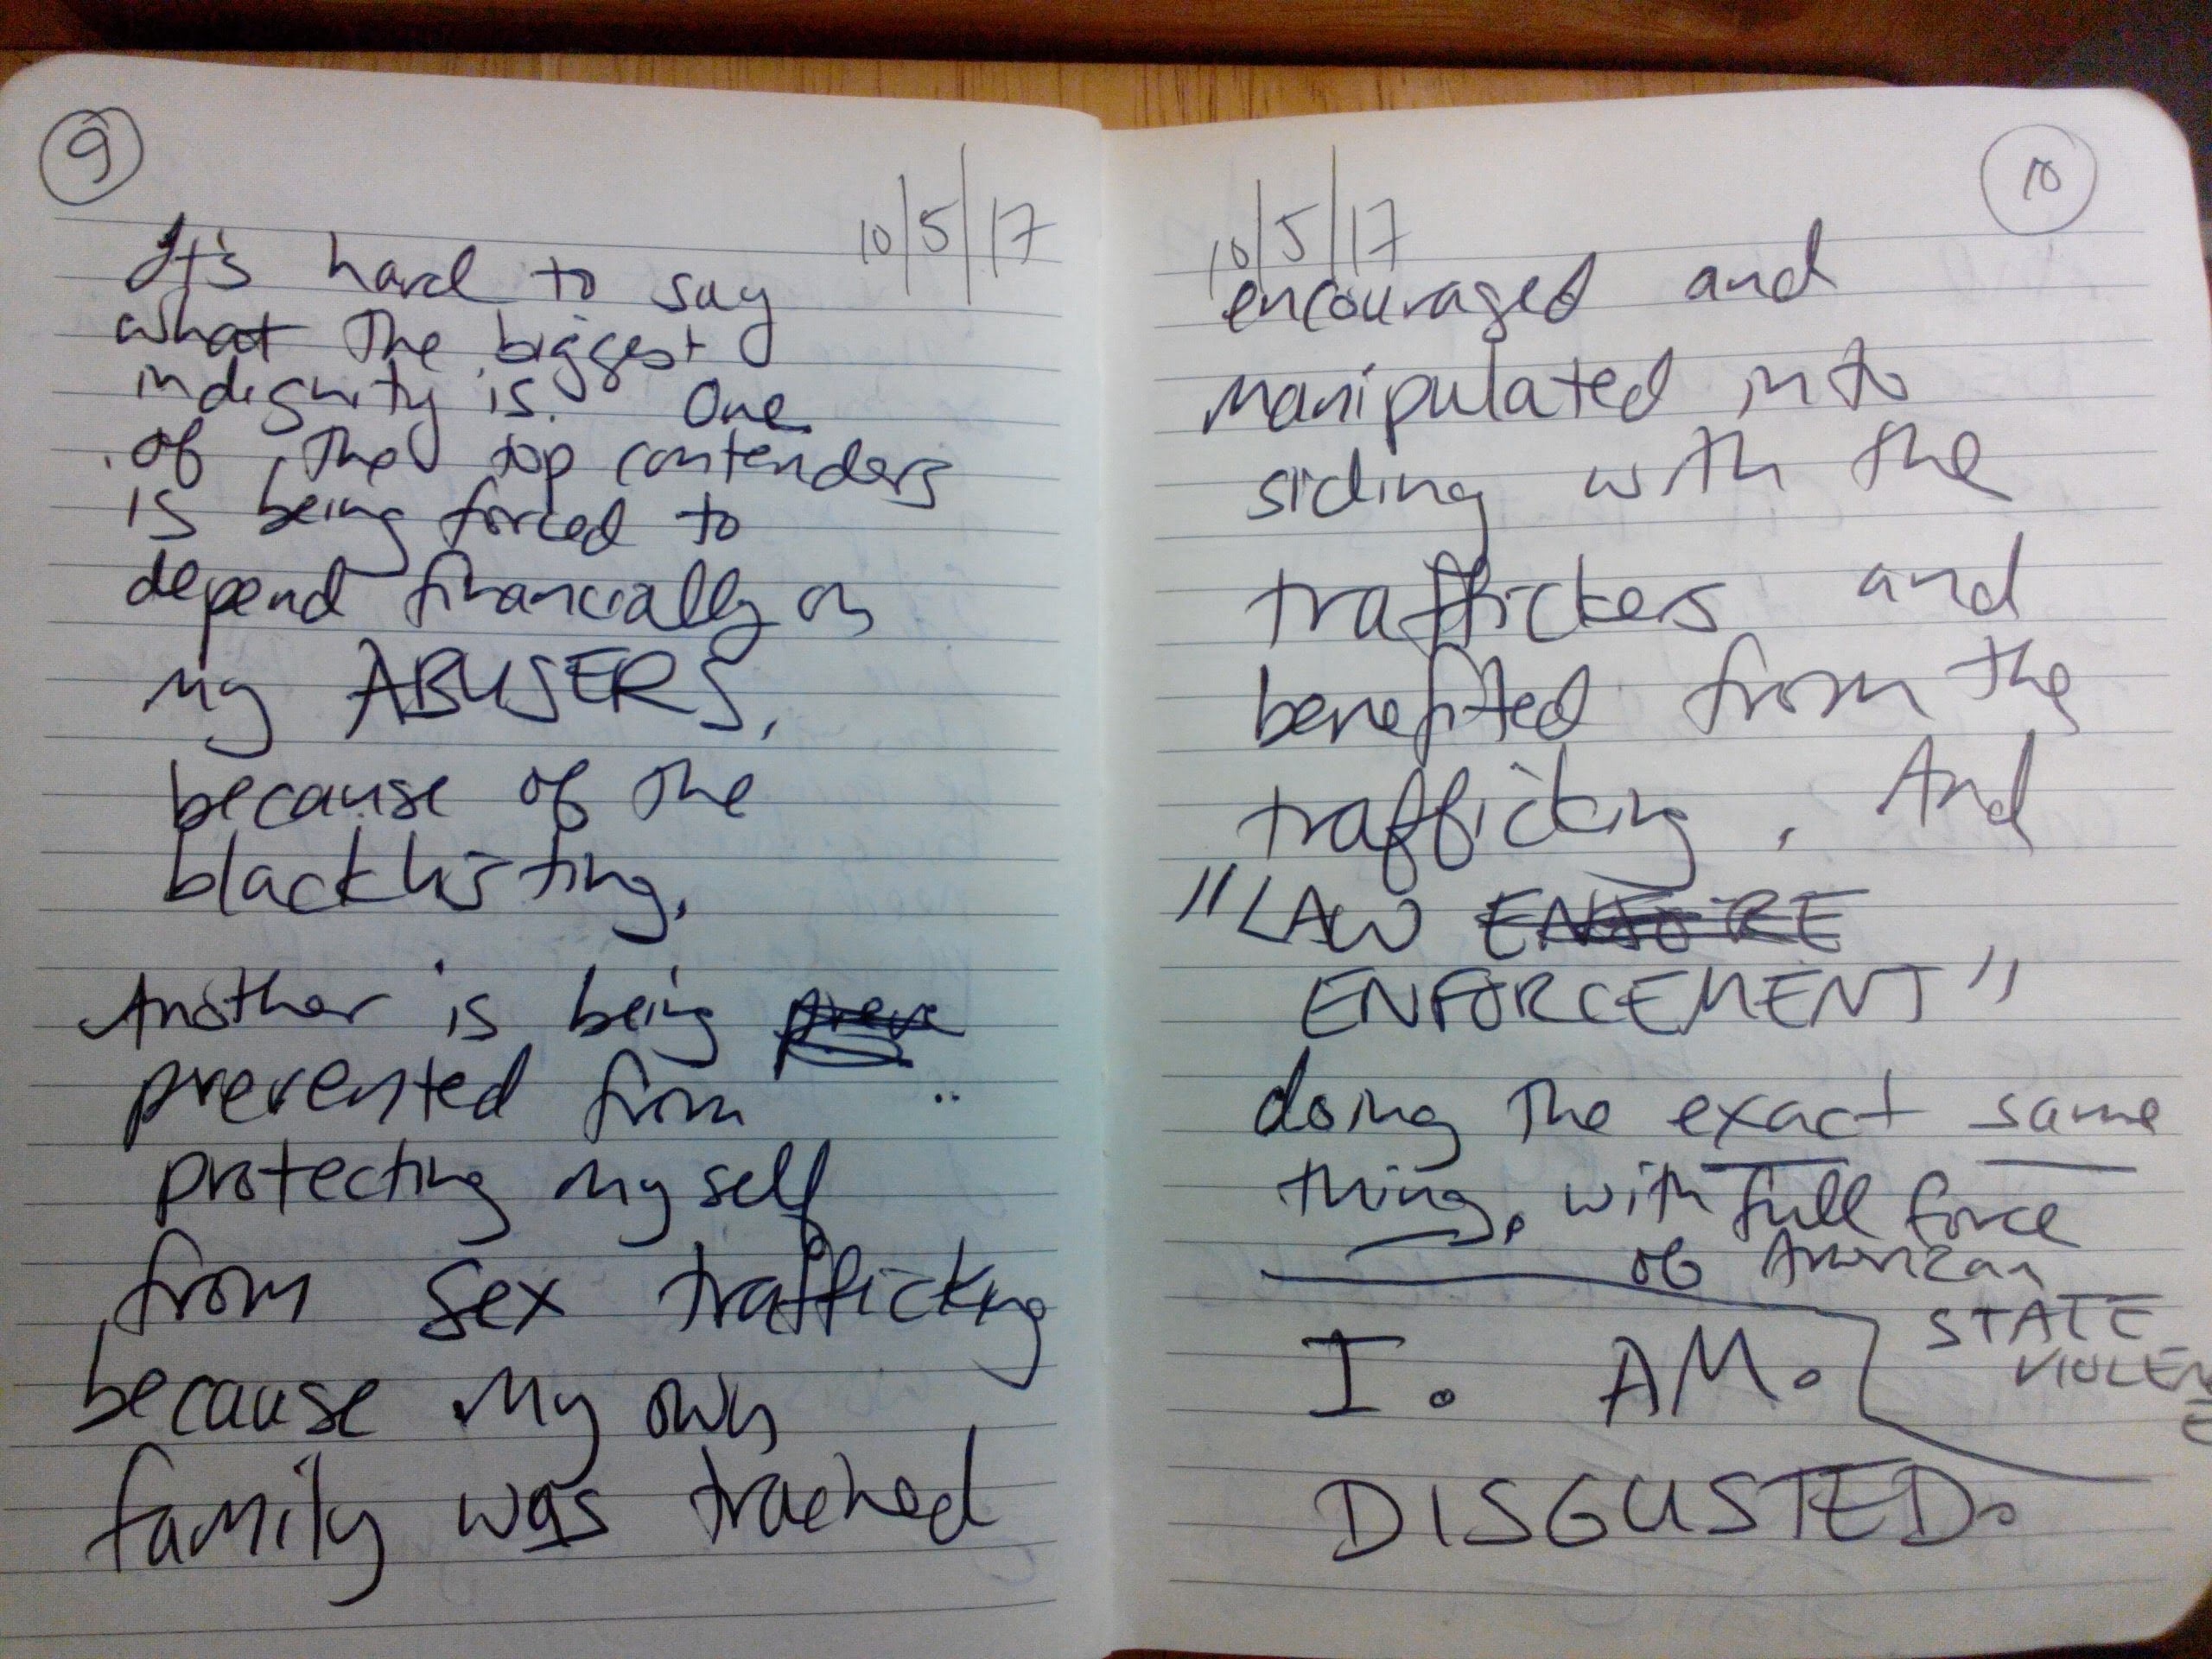 9
10/5/17
It's hard to say
what the biggest
indignity is. One
of the top contenders
is being forced to
depend financially on
my ABUSERS,
because of the
blacklisting.
Another is being
prevented from
protecting myself
from sex trafficking
because my own
family was trained
10
10/5/17
encouraged and
manipulated into
siding with the
traffickers and
benefited from the
trafficking. And
"LAW ENFORE
ENFORCEMENT"
doing the exact same
thing, with full force
of American
STATE
VIOLENCE
I. AM.
DISGUSTED.